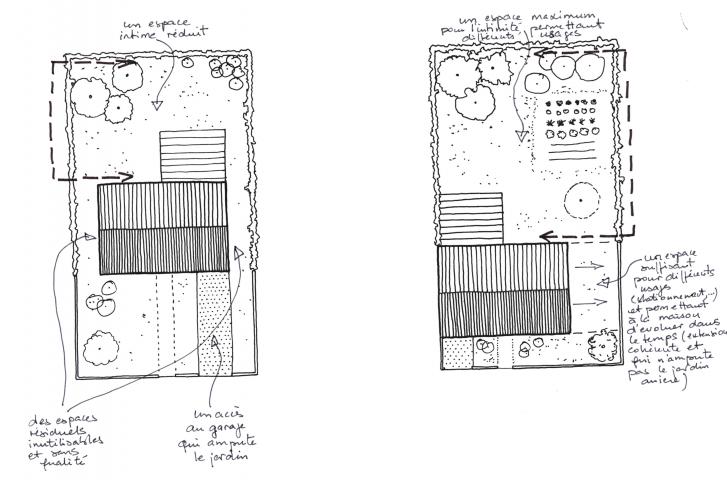 un espace
intime réduit
des espaces
résiduels
inutilisables
et sans
qualité
un accès
au garage
qui ampute
le jardin
un espace maximum
pour l'intimité, permettant
différents usages
un espace
suffisant
pour différents
usages
(stationnement,...)
et permettant
à la maison
d'évoluer dans
le temps (extension
cohérente et
qui n'ampute
pas le jardin
arrière)